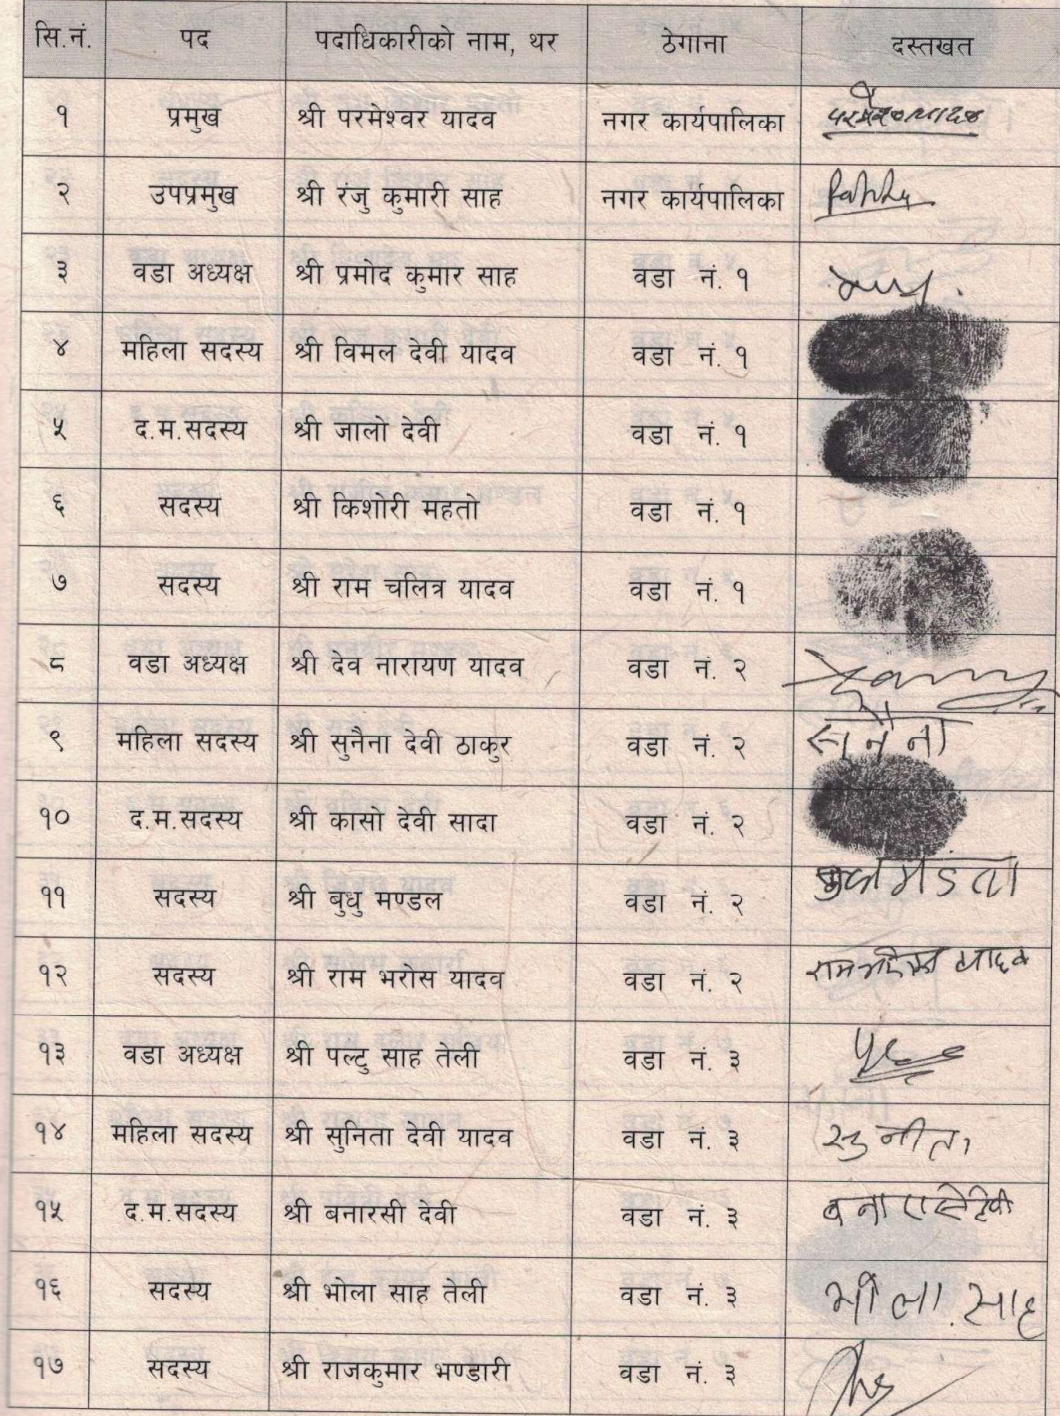 सि.नं. पद पदाधिकारीको नाम, थर ठेगाना दस्तखत
१ प्रमुख श्री परमेश्वर यादव नगर कार्यपालिका
२ उपप्रमुख श्री रंजु कुमारी साह नगर कार्यपालिका
३ वडा अध्यक्ष श्री प्रमोद कुमार साह वडा नं. १
४ महिला सदस्य श्री विमल देवी यादव वडा नं. १
५ द.म.सदस्य श्री जालो देवी वडा नं. १
६ सदस्य श्री किशोरी महतो वडा नं. १
७ सदस्य श्री राम चलित्र यादव वडा नं. १
८ वडा अध्यक्ष श्री देव नारायण यादव वडा नं. २
९ महिला सदस्य श्री सुनैना देवी ठाकुर वडा नं. २ सुनैना
१० द.म.सदस्य श्री कासो देवी सादा वडा नं. २
११ सदस्य श्री बुधु मण्डल वडा नं. २
१२ सदस्य श्री राम भरोस यादव वडा नं. २
१३ वडा अध्यक्ष श्री पल्टु साह तेली वडा नं. ३
१४ महिला सदस्य श्री सुनिता देवी यादव वडा नं. ३ सुनीता
१५ द.म.सदस्य श्री बनारसी देवी वडा नं. ३
१६ सदस्य श्री भोला साह तेली वडा नं. ३ भोला साह
१७ सदस्य श्री राजकुमार भण्डारी वडा नं. ३